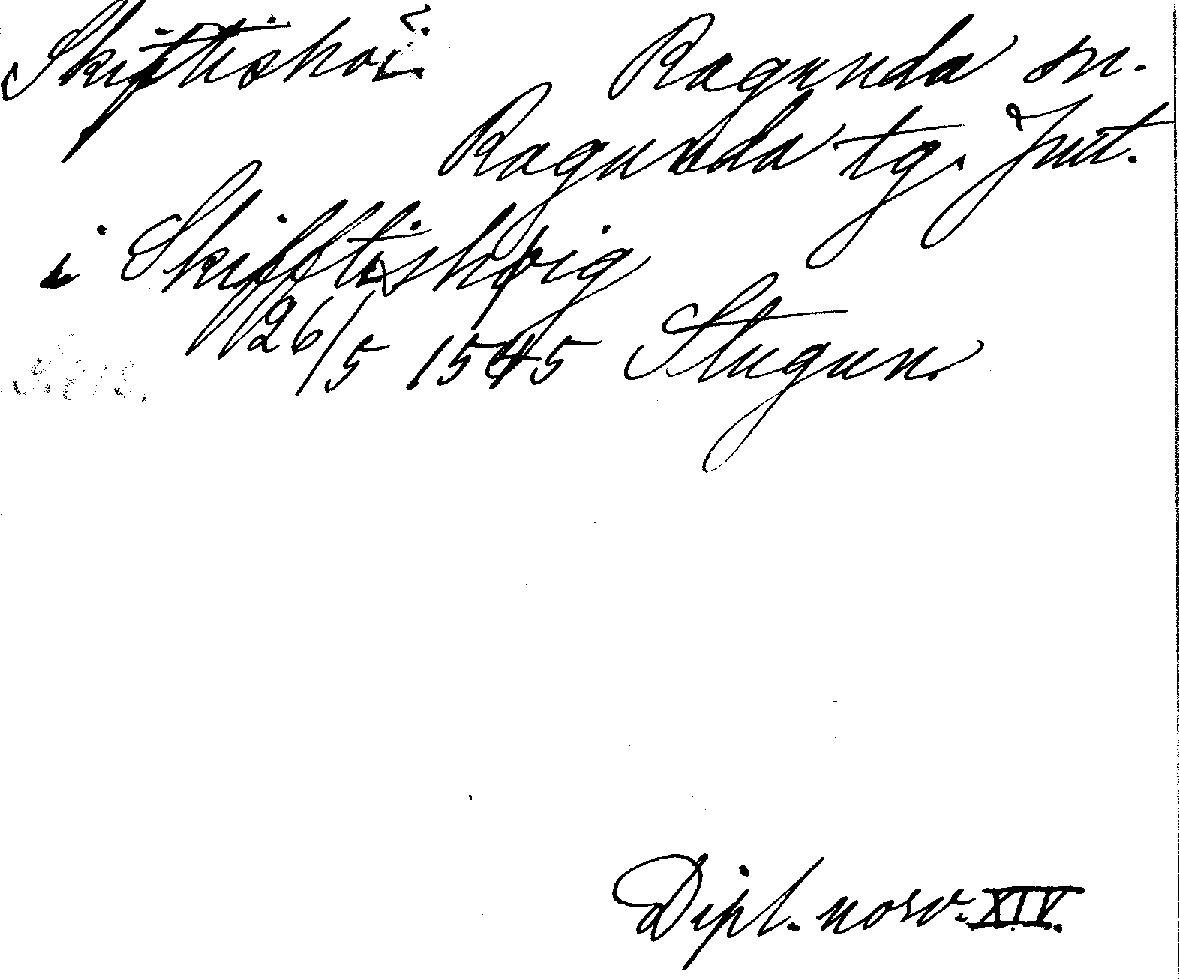 Skiftishoi. Ragunda sn.
Ragunda tg. Jmt.
i Skifftishøig
26/5 1545 Stugun.
Dipl. norv. XIV.